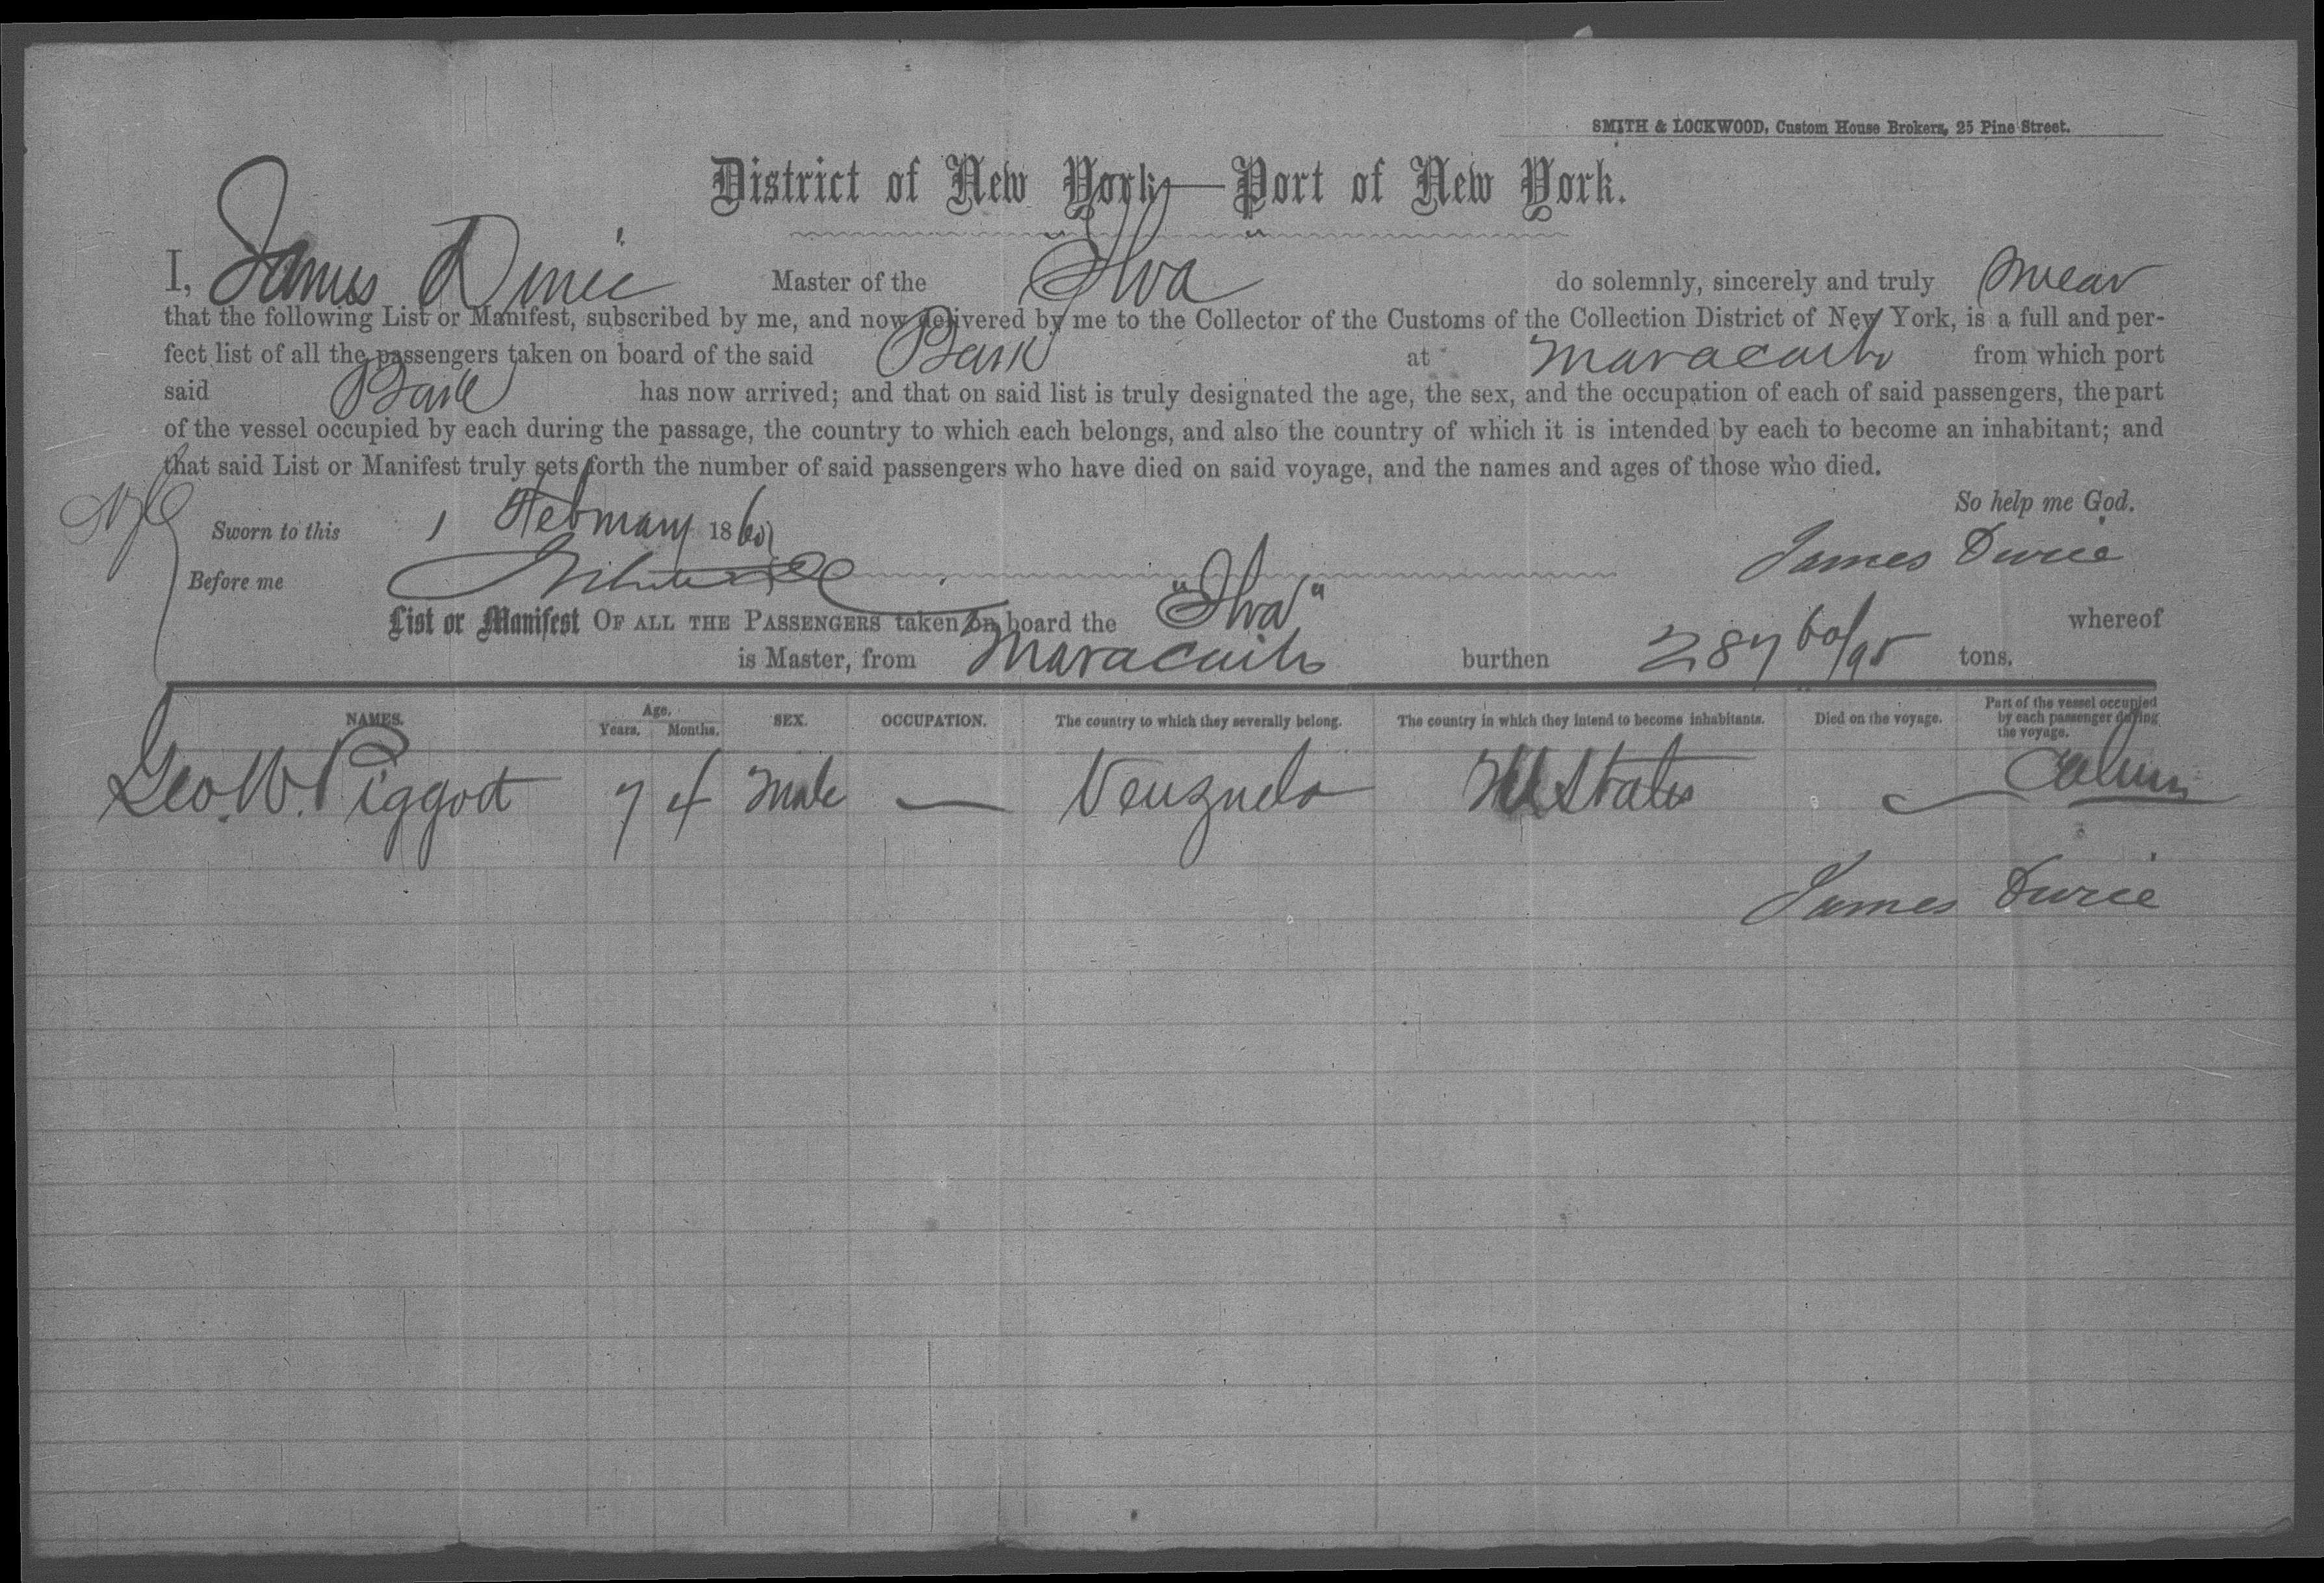 SMITH & LOCKWOOD, Custom House Brokers, 25 Pine Street.
District of New York—Port of New York.
I, James Durie Master of the Ilva do solemnly, sincerely and truly swear
that the following List or Manifest, subscribed by me, and now delivered by me to the Collector of the Customs of the Collection District of New York, is a full and per-
fect list of all the passengers taken on board of the said Bark at Maracaibo from which port
said Bark has now arrived; and that on said list is truly designated the age, the sex, and the occupation of each of said passengers, the part
of the vessel occupied by each during the passage, the country to which each belongs, and also the country of which it is intended by each to become an inhabitant; and
that said List or Manifest truly sets forth the number of said passengers who have died on said voyage, and the names and ages of those who died.
So help me God.
Sworn to this 1 February 1860
James Durie
Before me
List or Manifest OF ALL THE PASSENGERS taken on board the "Ilva" whereof
is Master, from Maracaibo burthen 287 60/95 tons.
NAMES. Age. Years. Months. SEX. OCCUPATION. The country to which they severally belong. The country in which they intend to become inhabitants. Died on the voyage. Part of the vessel occupied by each passenger during the voyage.
Geo. W. Piggott 7 4 Male — Venzuela U States — Cabin
James Durie